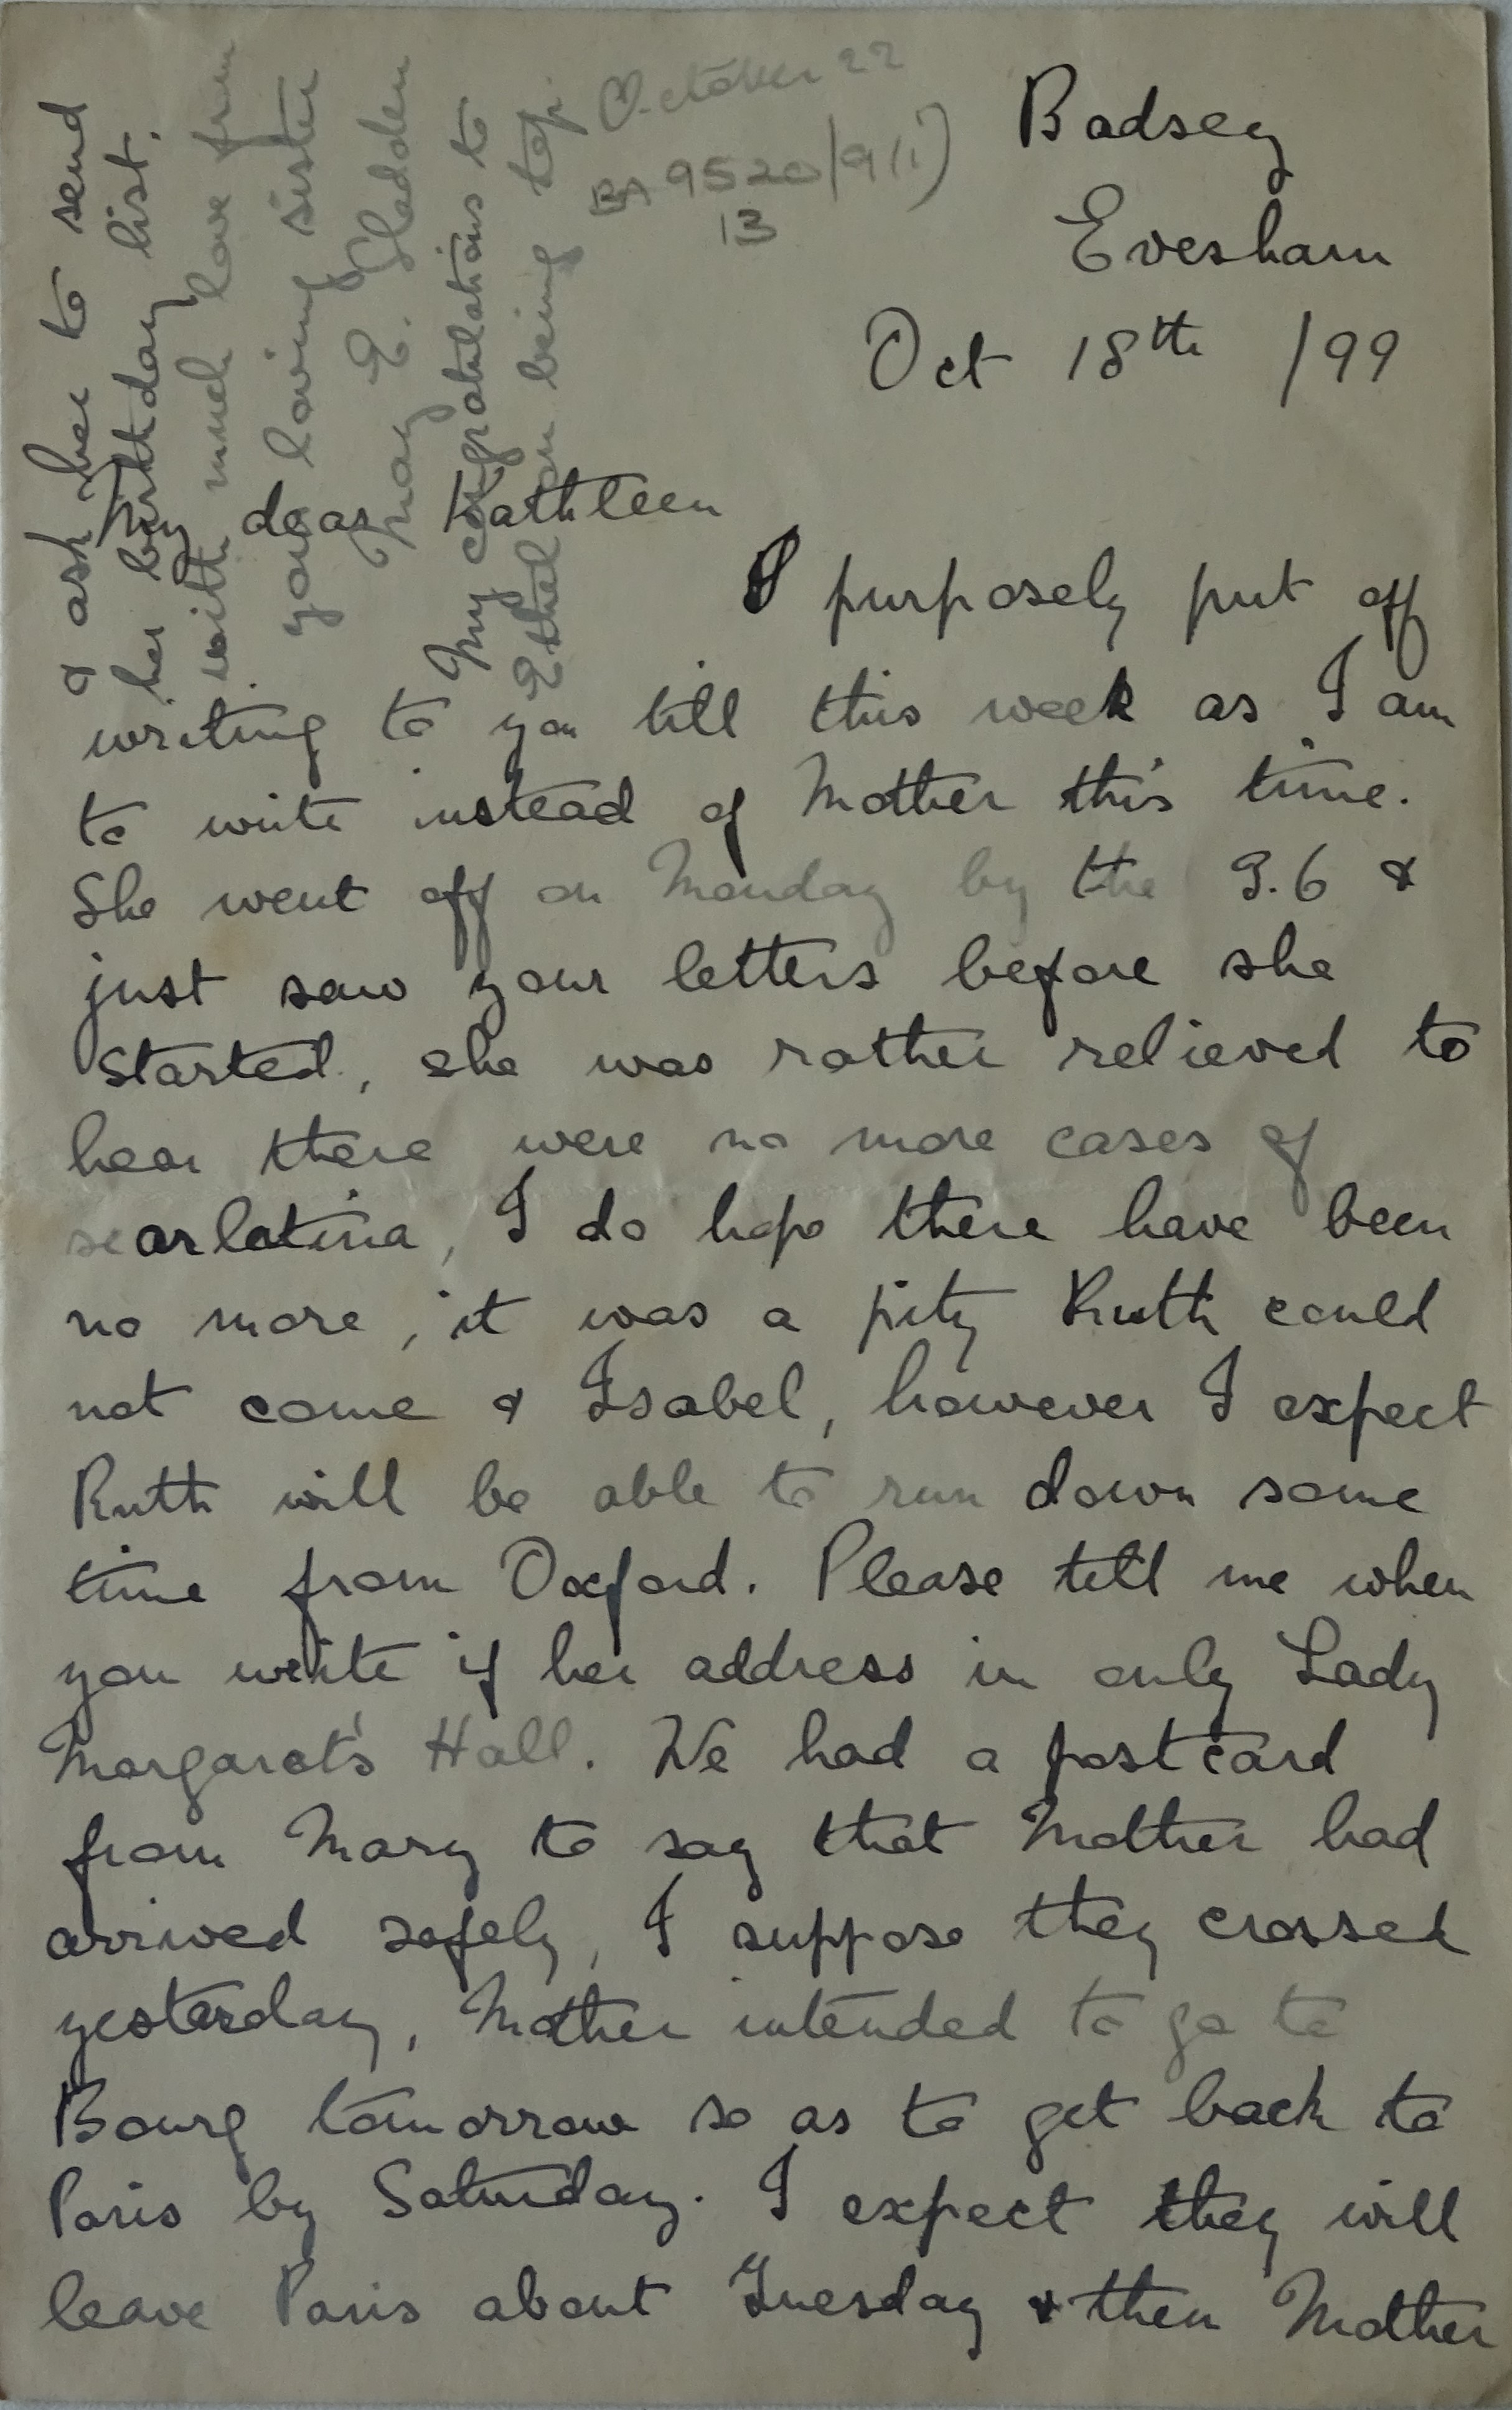 October 22
BA 9520/9(i)
13
Badsey
Evesham
Oct 18th /99
My dear Kathleen
I purposely put off
writing to you till this week as I am
to write instead of Mother this time.
She went off on Monday by the 9.6 &
just saw your letters before she
started, she was rather relieved to
hear there were no more cases of
scarlatina, I do hope there have been
no more, it was a pity Ruth could
not come & Isabel, however I expect
Ruth will be able to run down some
time from Oxford. Please tell me when
you write if her address in only Lady
Margaret's Hall. We had a postcard
from Mary to say that Mother had
arrived safely, I suppose they crossed
yesterday, Mother intended to go to
Bourg tomorrow so as to get back to
Paris by Saturday. I expect they will
leave Paris about Tuesday & then Mother
& ask her to send
her birthday list.
with much love from
your loving sister
May E. Sladden
My congratulations to
Ethel on being top.